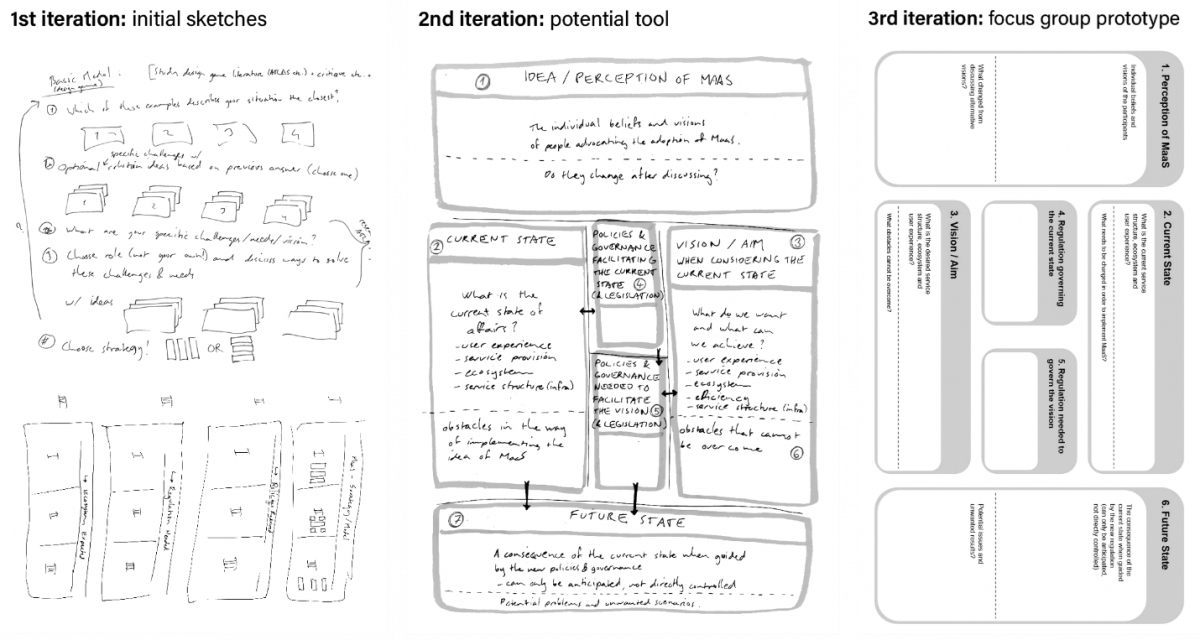 1st iteration: initial sketches
Basic Model.
(design game)
[Study design game literature (ATLAS etc.) + critique etc..
① Which of these examples describes your situation the closest?
1 2 3 4
specific challenges w/
Optional solution ideas based on previous answer (choose one)
1 2 3 4
② What are your specific challenges/needs/vision?
③ Choose role (not your own!) and discuss ways to solve
these challenges & needs
w/ ideas
④ Choose strategy! OR
2nd iteration: potential tool
① IDEA / PERCEPTION OF MAAS
The individual beliefs and visions
of people advocating the adoption of MaaS.
Do they change after discussing?
② CURRENT STATE
What is the
current state of
affairs?
- user experience
- service provision
- ecosystem
- service structure (infra)
obstacles in the way
of implementing the
idea of MaaS
POLICIES &
GOVERNANCE
FACILITATING
THE CURRENT
STATE ④
(& LEGISLATION)
POLICIES &
GOVERNANCE
NEEDED TO
FACILITATE
THE VISION ⑤
(& LEGISLATION)
③
VISION / AIM
WHEN CONSIDERING THE
CURRENT STATE
What do we want
and what can
we achieve?
- user experience
- service provision
- ecosystem
- efficiency
- service structure (infra)
obstacles that cannot
be overcome
⑥
⑦ FUTURE STATE
A consequence of the current state when guided
by the new policies & governance
- can only be anticipated, not directly controlled
Potential problems and unwanted scenarios.
3rd iteration: focus group prototype
1. Perception of MaaS
Individual beliefs and
visions of the participants
What changed from
discussing alternative
visions?
2. Current State
What is the current service
structure, ecosystem and
user experience?
What needs to be changed in order to implement MaaS?
4. Regulation governing
the current state
5. Regulation needed to
govern the vision
3. Vision / Aim
What is the desired service
structure, ecosystem and
user experience?
What obstacles cannot be overcome?
6. Future State
The consequence of the
current state when guided
by the new regulation
(can only be anticipated,
not directly controlled)
Potential issues and
unwanted results?